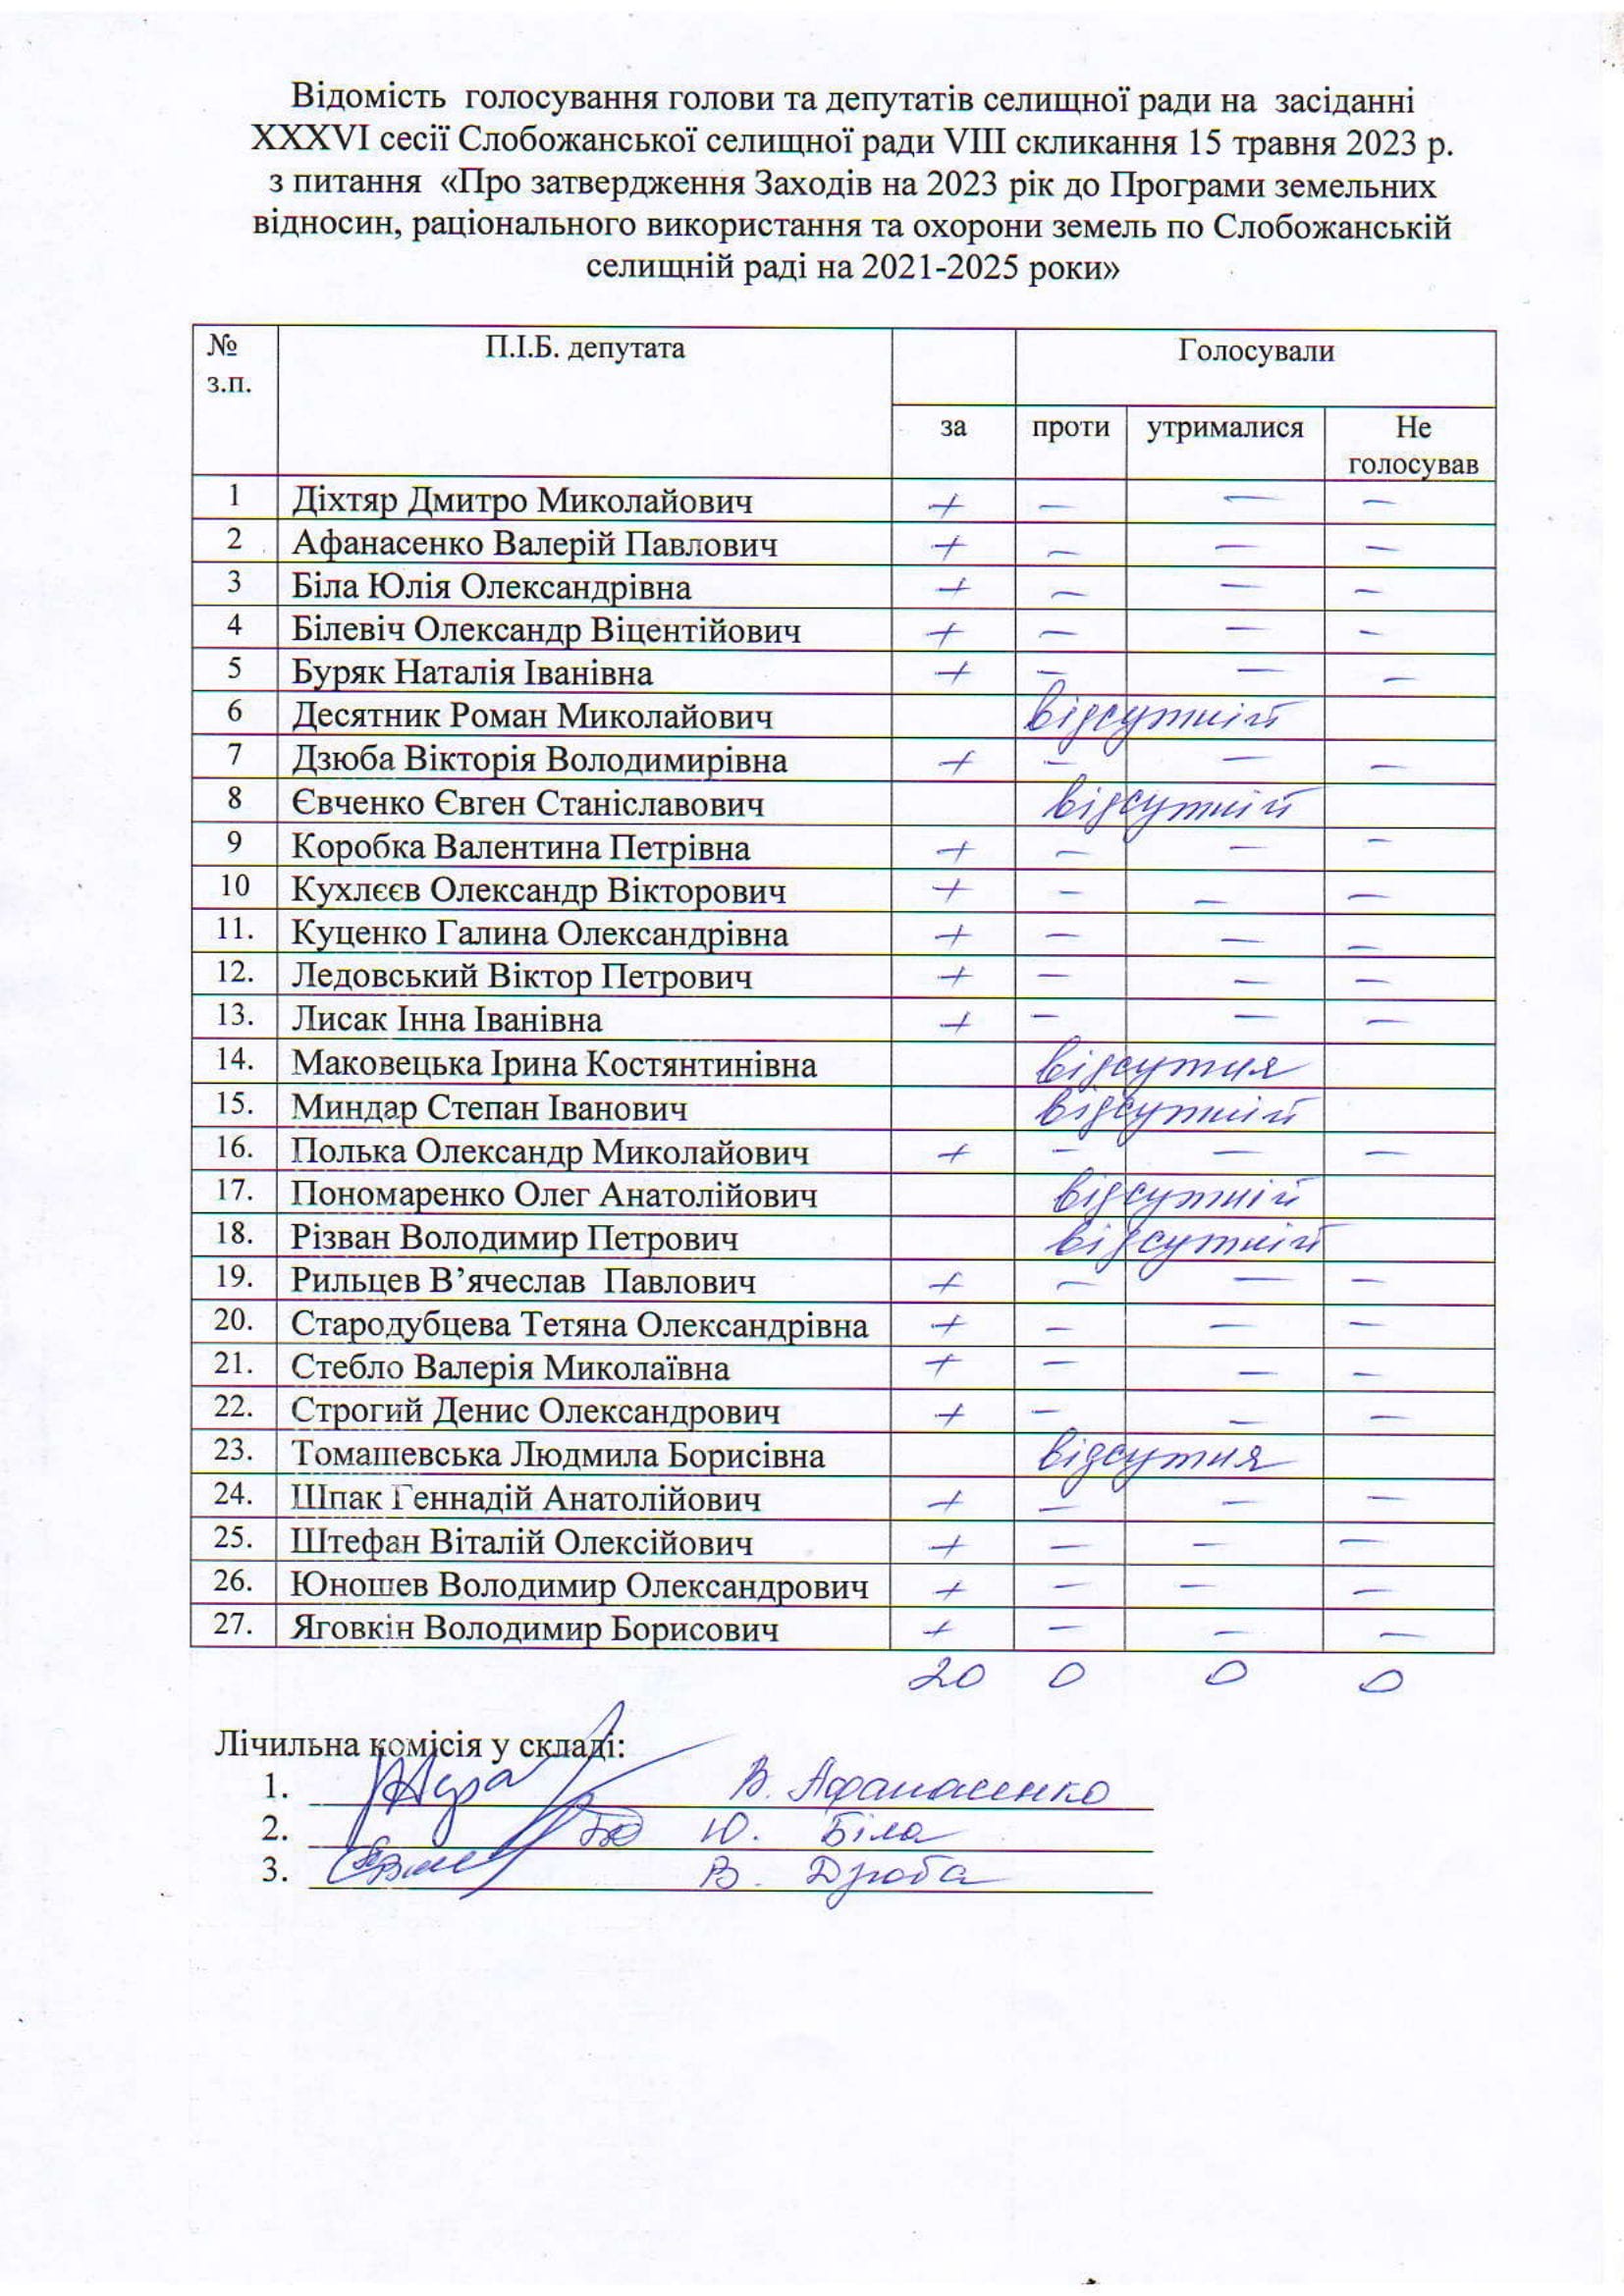 Відомість голосування голови та депутатів селищної ради на засіданні
XXXVI сесії Слобожанської селищної ради VIII скликання 15 травня 2023 р.
з питання «Про затвердження Заходів на 2023 рік до Програми земельних
відносин, раціонального використання та охорони земель по Слобожанській
селищній раді на 2021-2025 роки»
№ з.п. П.І.Б. депутата Голосували
за проти утрималися Не голосував
1 Діхтяр Дмитро Миколайович + — — —
2 Афанасенко Валерій Павлович + — — —
3 Біла Юлія Олександрівна + — — —
4 Білевіч Олександр Віцентійович + — — —
5 Буряк Наталія Іванівна + — — —
6 Десятник Роман Миколайович відсутній
7 Дзюба Вікторія Володимирівна + — — —
8 Євченко Євген Станіславович відсутній
9 Коробка Валентина Петрівна + — — —
10 Кухлєєв Олександр Вікторович + — — —
11. Куценко Галина Олександрівна + — — —
12. Ледовський Віктор Петрович + — — —
13. Лисак Інна Іванівна + — — —
14. Маковецька Ірина Костянтинівна відсутня
15. Миндар Степан Іванович відсутній
16. Полька Олександр Миколайович + — — —
17. Пономаренко Олег Анатолійович відсутній
18. Різван Володимир Петрович відсутній
19. Рильцев В’ячеслав Павлович + — — —
20. Стародубцева Тетяна Олександрівна + — — —
21. Стебло Валерія Миколаївна + — — —
22. Строгий Денис Олександрович + — — —
23. Томашевська Людмила Борисівна відсутня
24. Шпак Геннадій Анатолійович + — — —
25. Штефан Віталій Олексійович + — — —
26. Юношев Володимир Олександрович + — — —
27. Яговкін Володимир Борисович + — — —
20 0 0 0
Лічильна комісія у складі:
1. В. Афанасенко
2. Ю. Біла
3. В. Дзюба